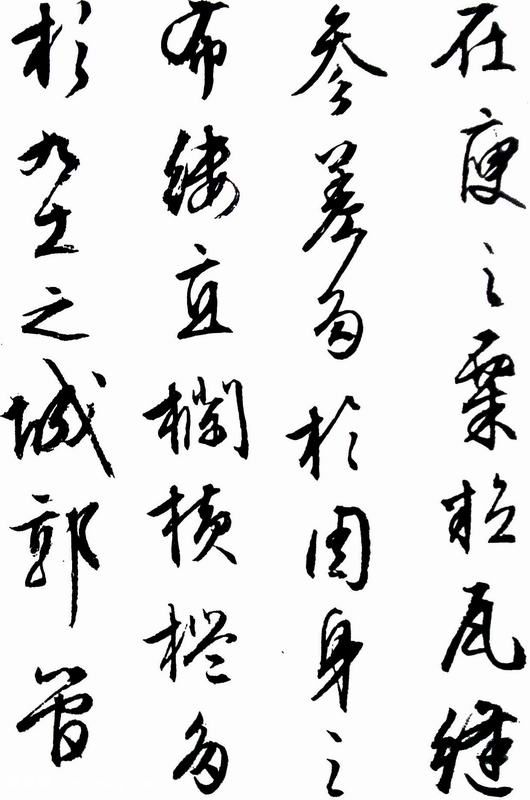 在庾之粟粒瓦縫
參差多於周身之
帛縷直欄橫檻多
於九土之城郭管